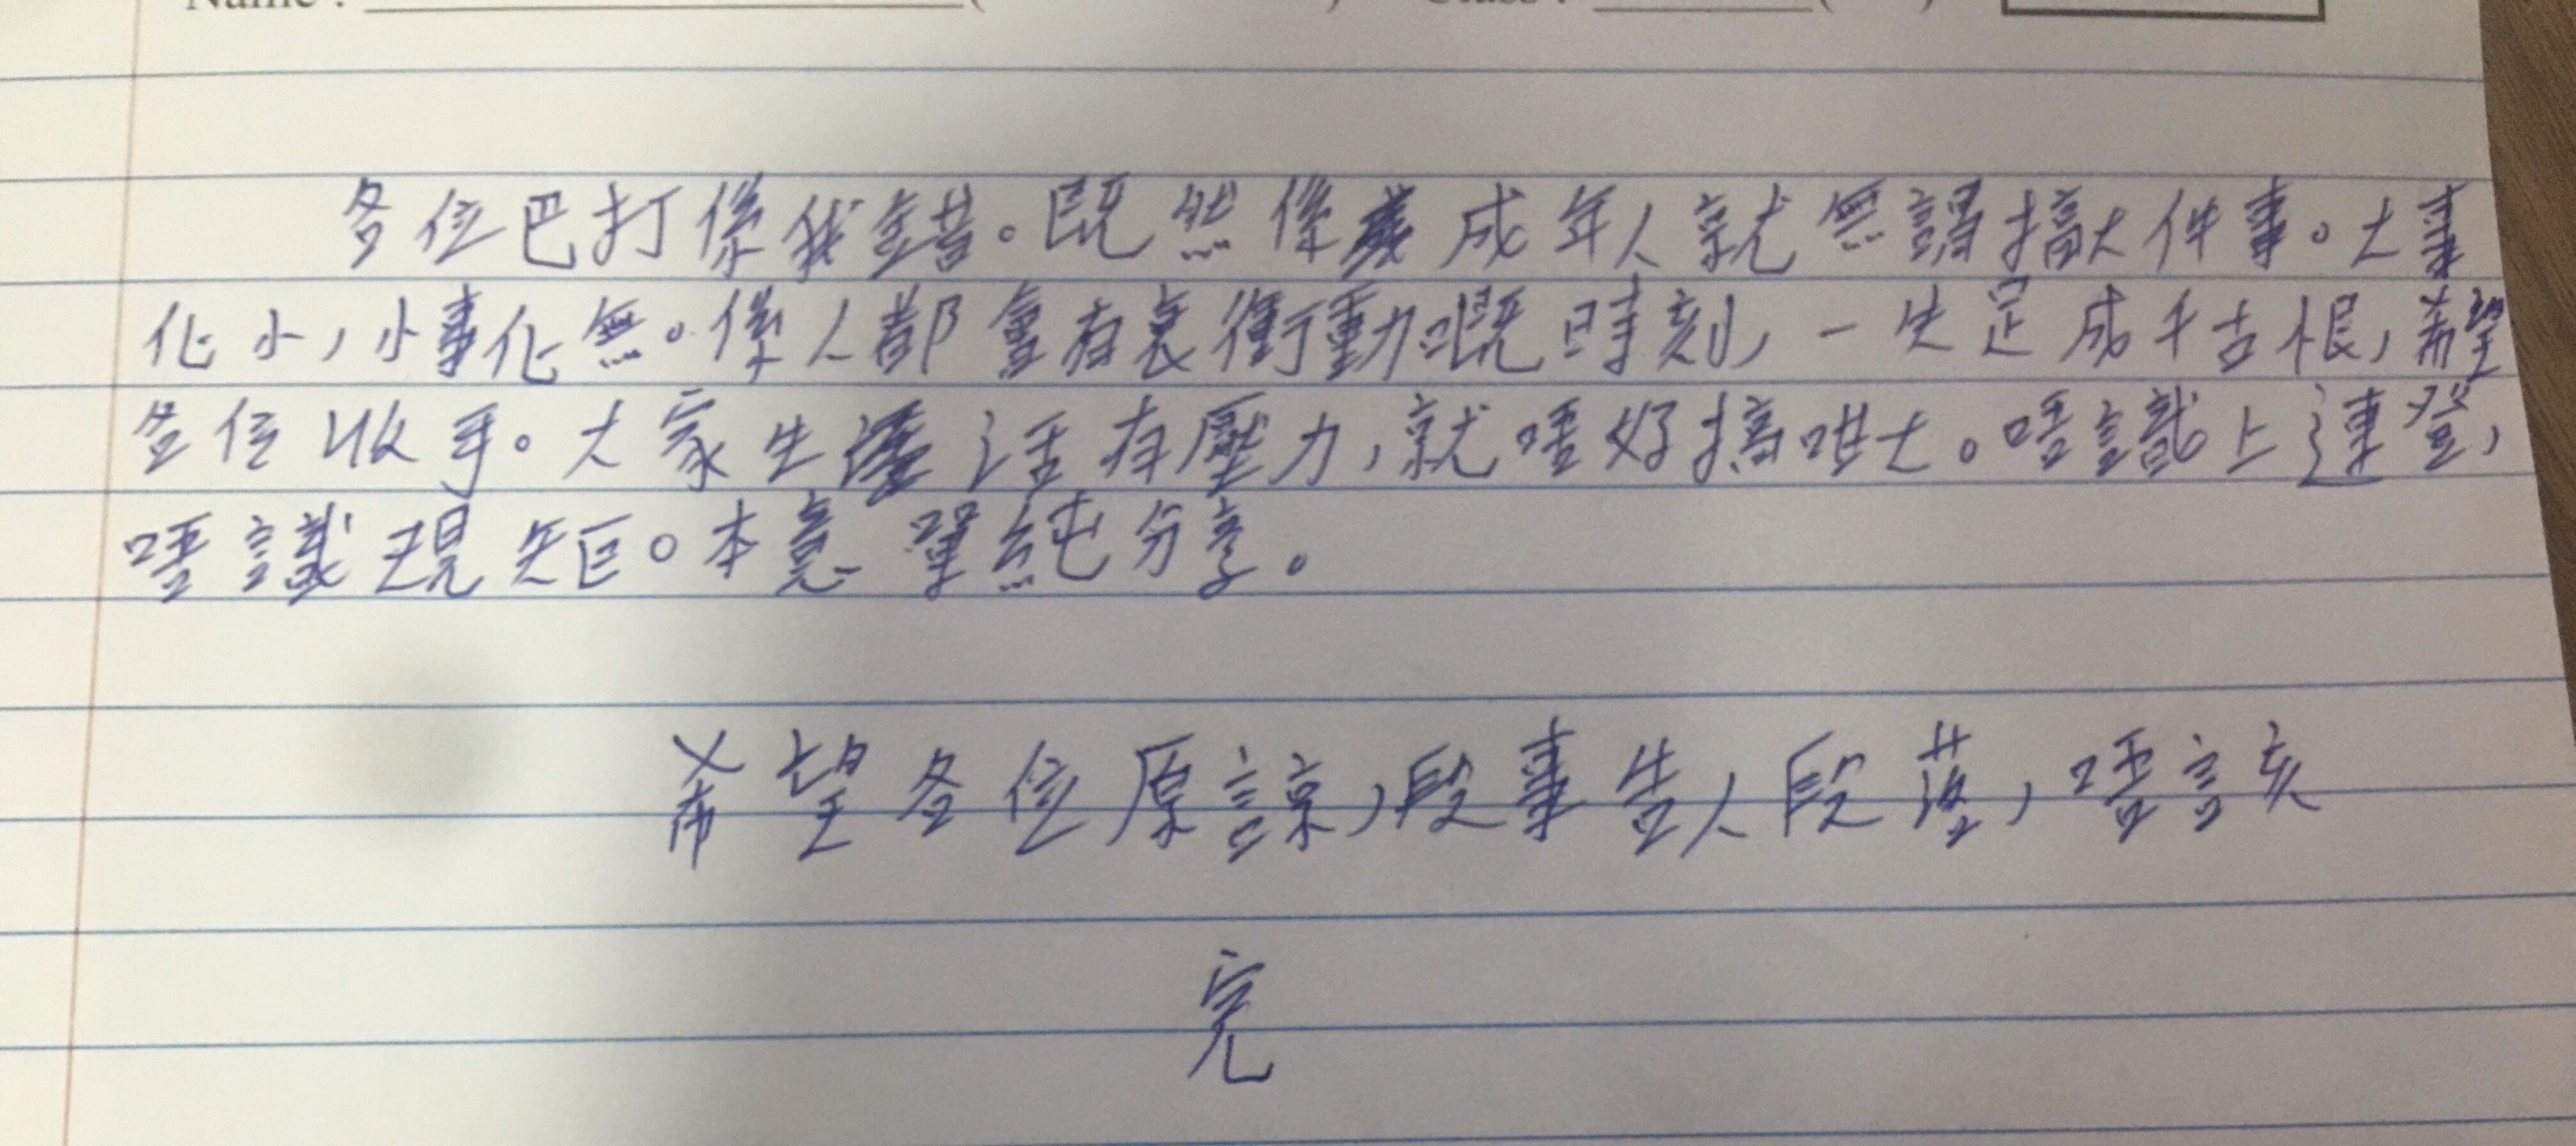 Name : ( ) Class : ( )
各位巴打係我錯。既然係成年人就無謂搞大件事。大事
化小，小事化無。係人都會有衰衝動嘅時刻，一失足成千古恨，希望
各位收手。大家生活有壓力，就唔好搞咁大。唔識上連登，
唔識規矩。本意單純分享。
希望各位原諒，段事告人段落，唔該
完